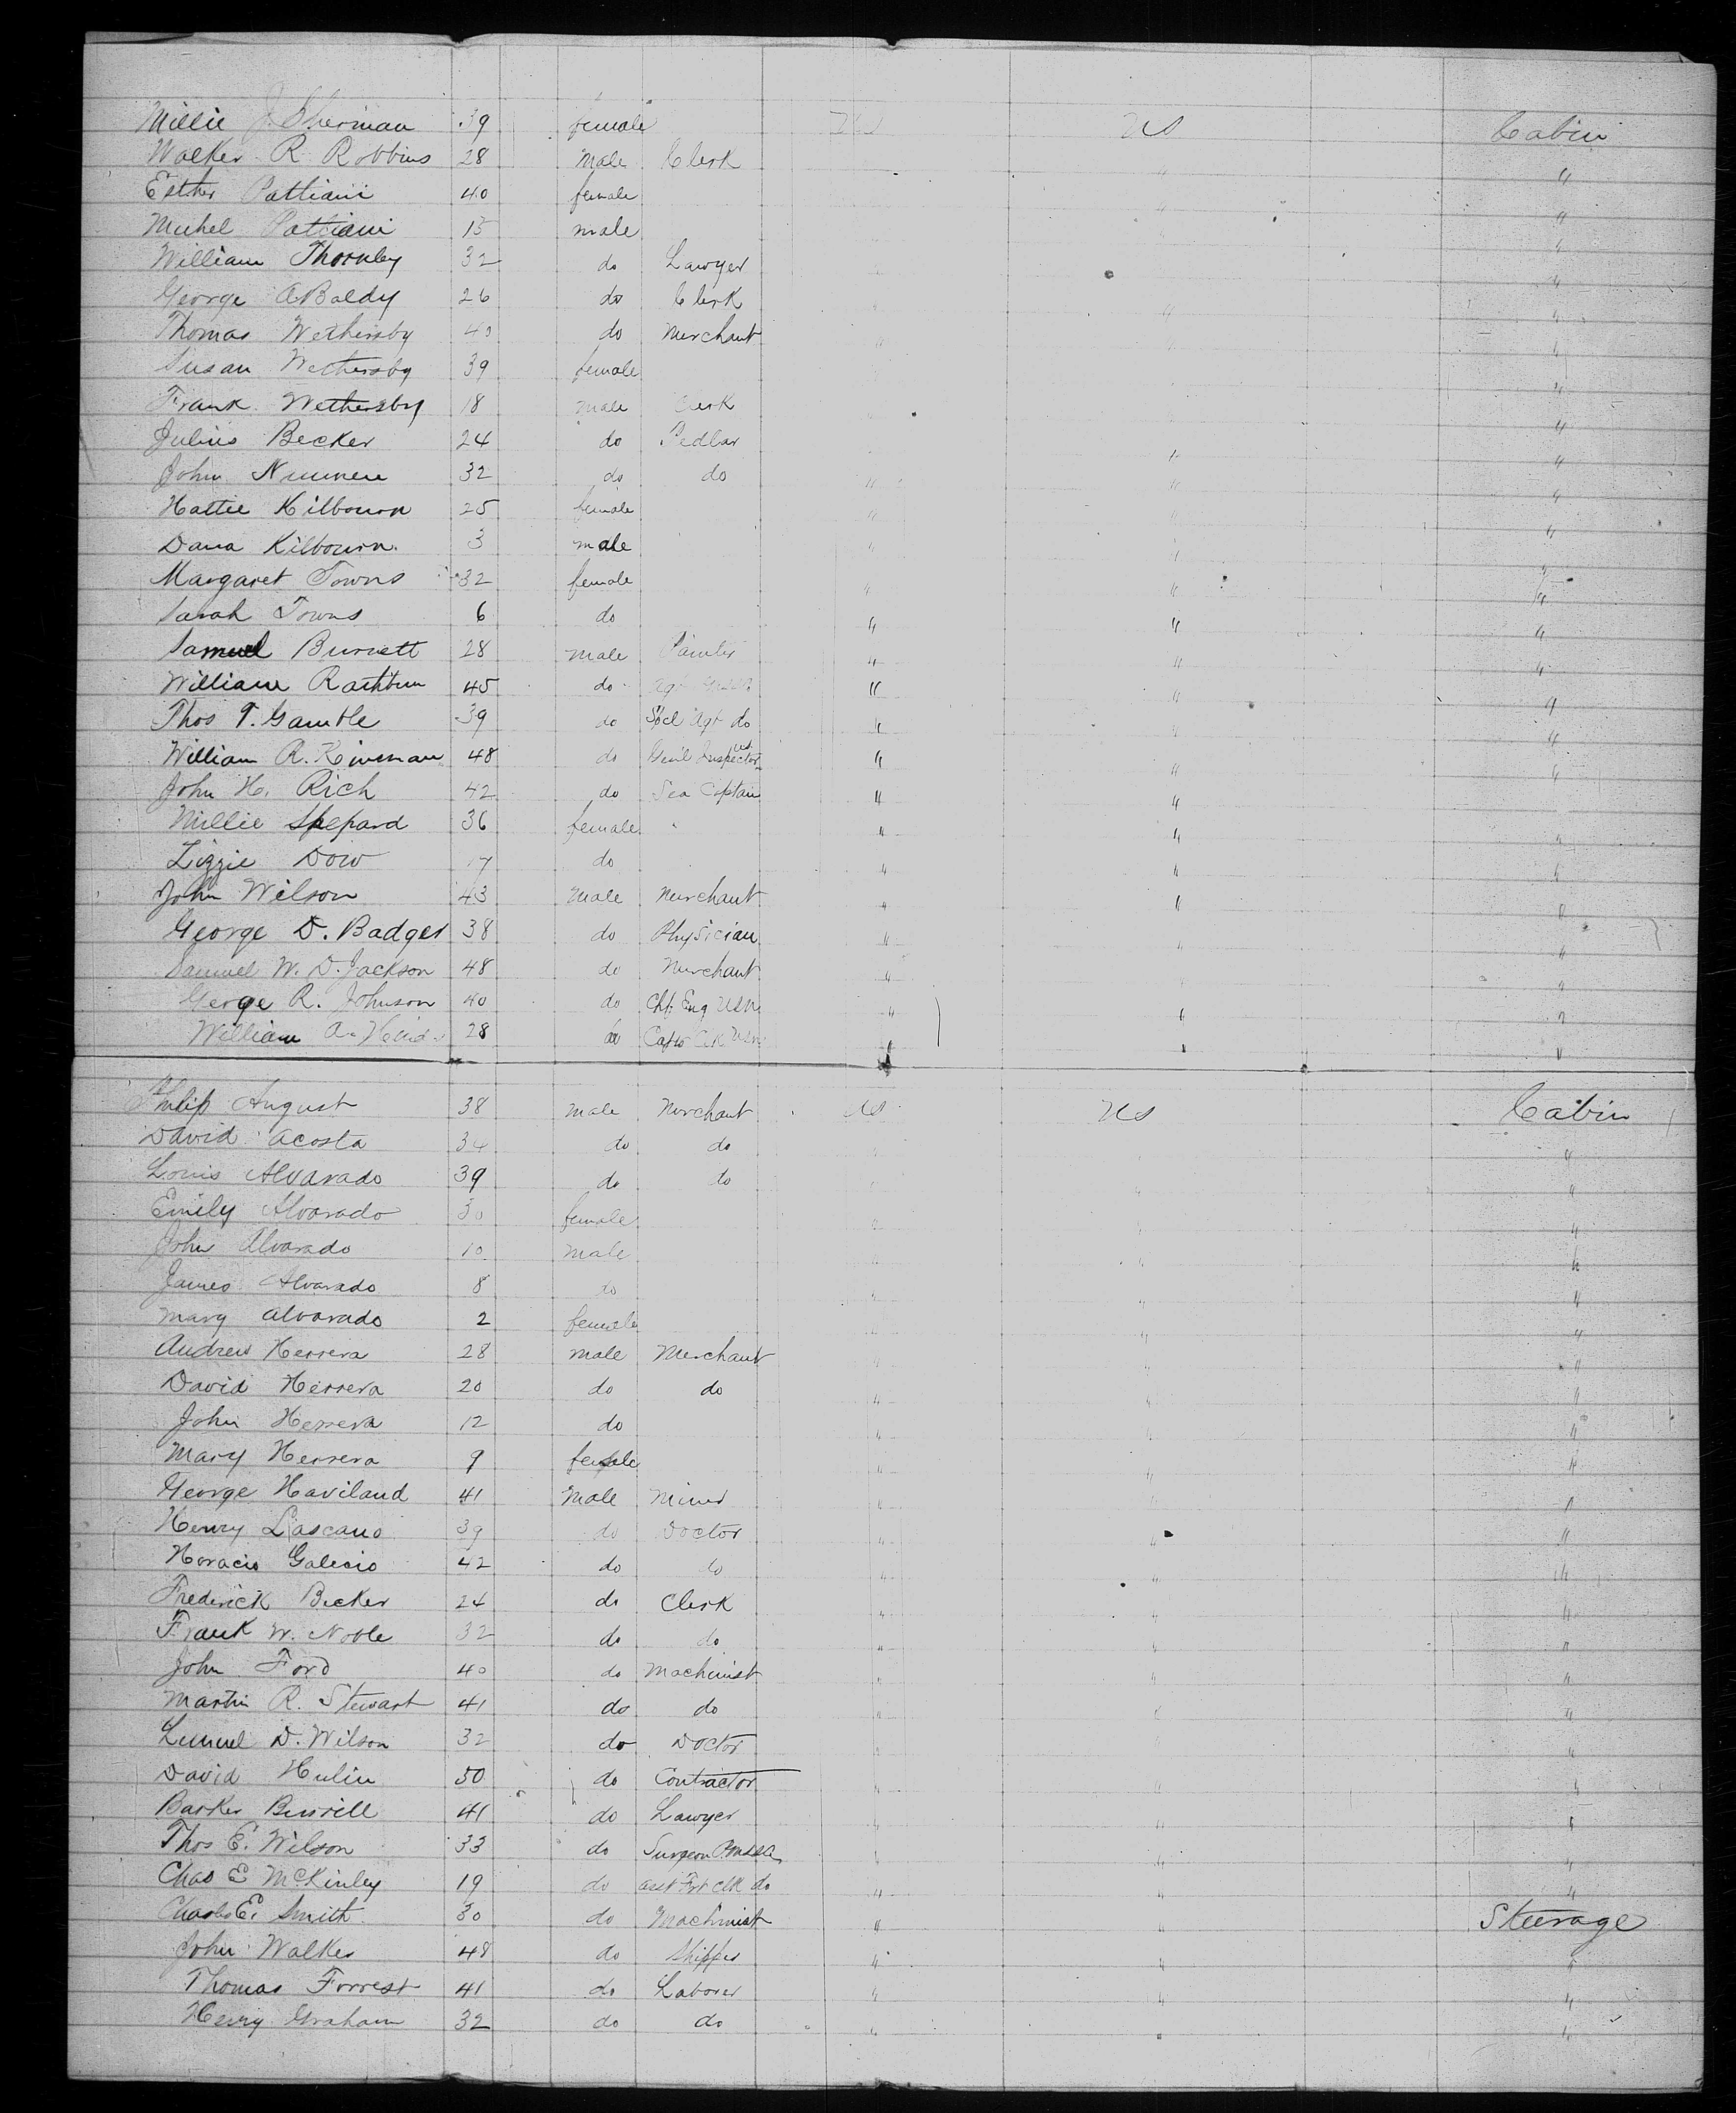 Millie J. Sherman 39 female US US Cabin
Walker R Robbins 28 Male Clerk " "
Esther Pattiani 40 female " "
Michel Pattiani 15 male " "
William Thornley 32 do Lawyer "
George A Baldy 26 do Clerk " "
Thomas Wethersby 40 do Merchant " "
Susan Wethersby 39 female "
Frank Wethersby 18 Male Clerk "
Julius Becker 24 do Pedlar " "
John 32 do do " " "
Hattie Kilbourn 25 female " " "
Dana Kilbourn 3 male " " "
Margaret Towns 32 female " " "
Sarah Towns 6 do " " "
Samuel Burnett 28 male Painter " " "
William Rathbun 45 do " " "
Thos T. Gamble 39 do Spcl Agt do " " "
William R. Kinsman 48 do Genl Inspector " " "
John H. Rich 42 do Sea Captain " "
Millie Shepard 36 female " " "
Lizzie Dow 17 do " " "
John Wilson 43 Male Merchant " " "
George D. Badger 38 do Physician " " "
Samuel W. D. Jackson 48 do Merchant " " "
George R. Johnson 40 do Chf. Eng USN " " "
William A. 28 do Capts Clk USN " " "
Philip August 38 male Merchant US US Cabin
David Acosta 34 do do " " "
Louis Alvarado 39 do do " " "
Emily Alvarado 30 female " " "
John Alvarado 10 Male " "
James Alvarado 8 do " " "
Mary Alvarado 2 female " " "
Andrew Herrera 28 male Merchant " " "
David Herrera 20 do do " " "
John Herrera 12 do " " "
Mary Herrera 9 female " " "
George Haviland 41 Male Miner " " "
Henry Lascano 39 do Doctor " " "
Horacio Galicio 42 do do " " "
Frederick Becker 24 do Clerk " " "
Frank W. Noble 32 do do " " "
John Ford 40 do Machinist " " "
Martin R. Stewart 41 do do " " "
Lemuel D. Wilson 32 do Doctor " "
David Hulin 50 do Contractor " " "
Barker Burrell 41 do Lawyer " " "
Thos E. Wilson 33 do Surgeon " " "
Chas E McKinley 19 do Asst Frt Clk do " " "
Charles E. Smith 30 do Machinist " " Steerage
John Walker 48 do Shipper " " "
Thomas Forrest 41 do Laborer " " "
Henry Graham 32 do do " " "